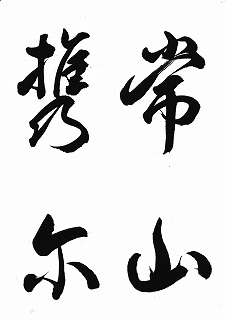 常山
携尔